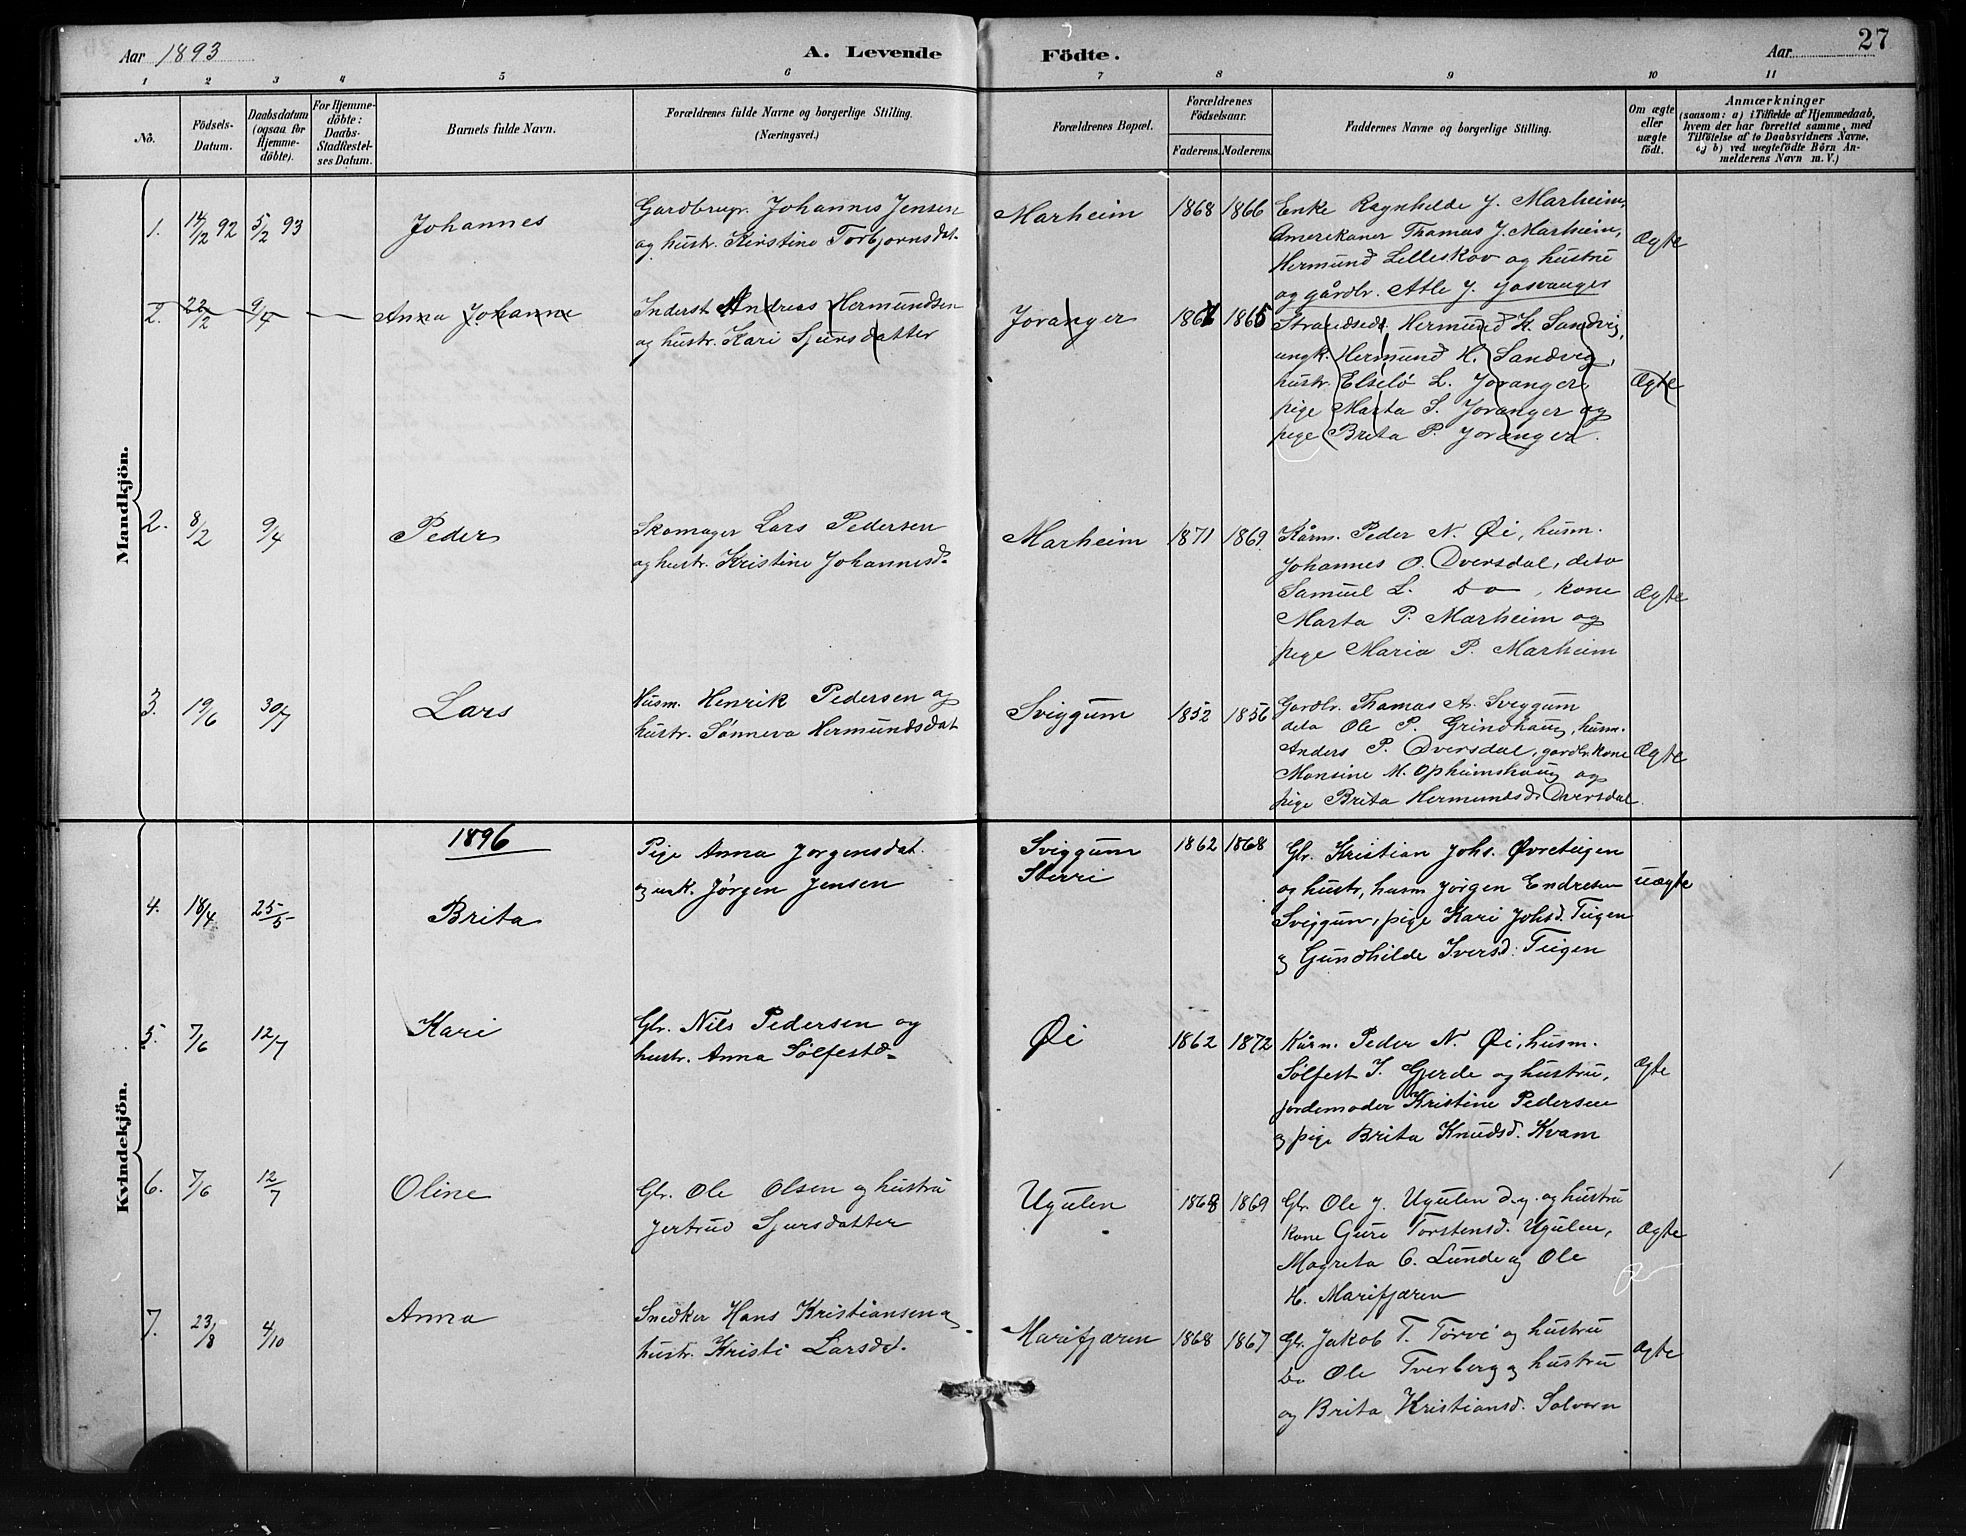 Aar 1893
A. Levende Födte.
Aar
27
1 2 3 4 5 6 7 8 9 10 11
No.
Födsels-Datum.
Daabsdatum (ogsaa for Hjemme-döbte).
For Hjemme-döbte: Daabs-Stadfæstel-ses Datum.
Barnets fulde Navn.
Forældrenes fulde Navne og borgerlige Stilling. (Næringsvei.)
Forældrenes Bopæl.
Forældrenes Födselsaar.
Faderens. Moderens.
Faddernes Navne og borgerlige Stilling.
Om ægte eller uægte födt.
Anmærkninger
(saasom: a) i Tilfælde af Hjemmedaab, hvem der har forrettet samme, med Tilföielse af to Daabsvidners Navne, og b) ved uægtefödte Börn Anmelderens Navn m. V.)
Mandkjön.
1. 14/2 92 5/2 93 Johannes
Gardbrugr. Johannes Jensen
og hustr. Kirstine Torbjornsdat.
Marheim 1868 1866
Enke Ragnhilde J. Marheim,
Amerikaner Thomas J. Marheim,
Hermund Lilleskov og hustru
og gårdbr. Atle J. Gasvanger
Ægte
2. 22/2 9/4 — Anna Johanne
Inderst Andreas Hermundsen
og hustr. Kari Sjursdatter
Joranger 1867 1865
Strandsid. Hermund K. Sandvig,
ungk. Hermund H. Sandvig,
hustr. Elselö L. Joranger,
pige Marta S. Joranger og
pige Brita P. Joranger.
Ægte
2. 8/2 9/4 Peder
Skomager Lars Pedersen
og hustr. Kristine Johannesd.
Marheim 1871 1869
Kårm. Peder N. Øi, husm.
Johannes O. Dversdal, deto
Samuel L. Do, kone
Marta P. Marheim og
pige Maria P. Marheim
Ægte
3. 19/6 30/7 Lars
Husm. Henrik Pedersen og
hustr. Sönneva Hermundsdat
Sviggum 1852 1856
Gardbr. Thomas A. Sviggum
deto Ole P. Grindhaug, husm.
Anders P. Dversdal, gardbr. kone
Monsine M. Opheimshaug og
pige Brita Hermundsd. Dversdal.
Ægte
Kvindekjön.
1896
4. 18/4 25/5 Brita
Pige Anna Jorgensdat.
og unk. Jørgen Jensen
Sviggum
Sterri
1862 1868
Gbr. Kristian Johs. Øvreteigen
og hustr, husm Jørgen Endresen
Sviggum, pige Kari Johsd. Teigen
og Gundhilde Iversd. Teigen
uægte
5. 7/6 12/7 Kari
Gbr. Nils Pedersen og
hustr. Anna Sølfestd.
Øi 1862 1872
Kårm. Peder N. Øi, husm.
Sölfest J. Gjerde og hustru,
jordemoder Kristine Pedersen
og pige Brita Knudsd. Kvam
Ægte
6. 7/6 12/7 Oline
Gbr. Ole Olsen og hustru
Jertrud Sjursdatter
Ugulen 1868 1869
Gbr. Ole J. Ugulen d.y. og hustru
kone Guri Torstensd. Ugulen,
Magreta O. Lunde og Ole
H. Marifjæren
Ægte
7. 23/8 4/10 Anna
Snedker Hans Kristiansen og
hustr. Kristi Larsdt.
Marifjæren 1868 1867
Gbr. Jakob T. Tørvi og hustru
Do Ole Tverberg og hustru
og Brita Kristiansd. Solvorn
Ægte